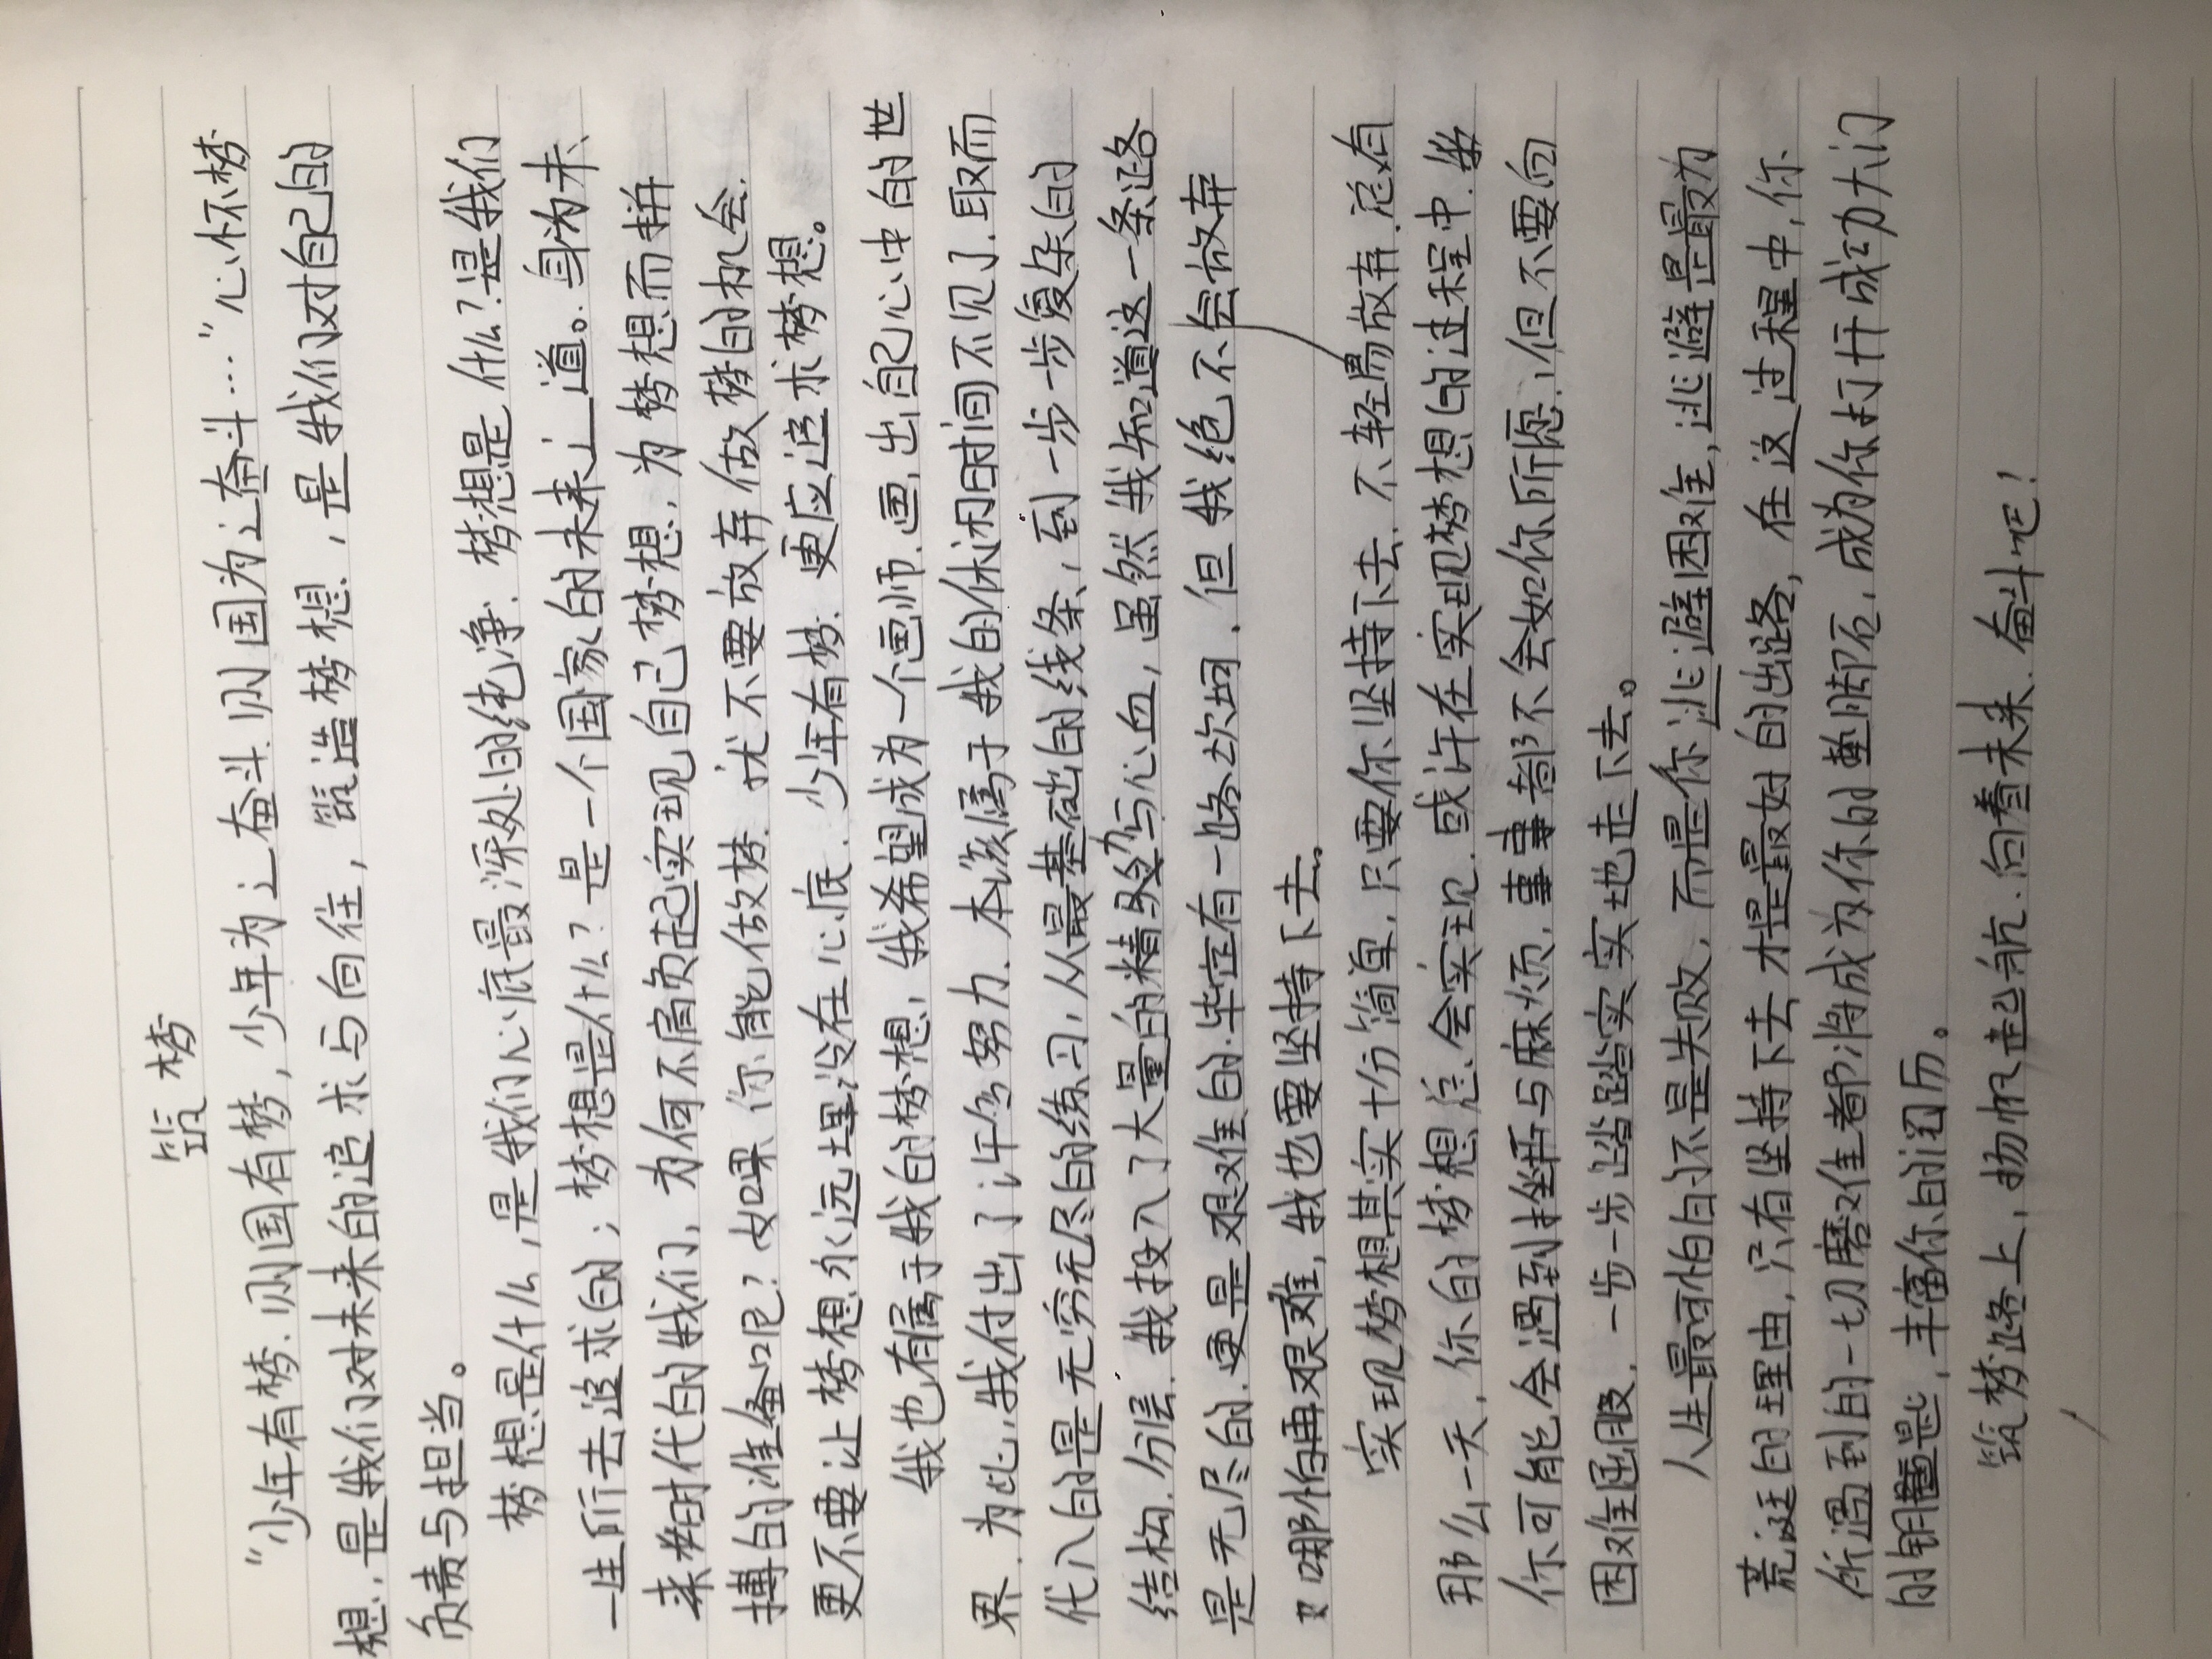 筑梦
“少年有梦.则国有梦,少年为之奋斗.则国为之奋斗…”心怀梦
想.是我们对未来的追求与向往,筑造梦想.,是我们对自己的
负责与担当。
梦想是什么,是我们心底最深处的纯净.梦想是什么?是我们
一生所去追求的;梦想是什么?是一个国家的未来之道。身为未
来时代的我们,为何不肩负起实现自己梦想,为梦想而拼
搏的准备呢?如果你能做梦.就不要放弃做梦的机会.
更不要让梦想永远埋没在心底.少年有梦.更应追求梦想。
我也有属于我的梦想,我希望成为一个画师.画出自己心中的世
界.为此,我付出了许多努力.本该属于我的休闲时间不见了.取而
代入的是无穷无尽的练习,从最基础的线条,到一步步复杂的
结构.分层.我投入了大量的精力与心血,虽然我知道这一条路
是无尽的.更是艰难的.毕定有一路坎坷.但我绝不会放弃
哪怕再艰难,我也要坚持下去。
实现梦想其实十分简单,只要你坚持下去.不轻易放弃.总有
那么一天,你的梦想总会实现.或许在实现梦想的过程中.
你可能会遇到挫折与麻烦,事事都不会如你所愿,但不要向
困难屈服.一步一步踏踏实实地走下去。
人生最可怕的不是失败,而是你逃避困难,逃避是最为
荒诞的理由,只有坚持下去才是最好的出路,在这过程中,你
所遇到的一切磨难都将成为你的垫脚石,成为你打开成功大门
的钥匙,丰富你的阅历。
筑梦路上,扬帆起航.向着未来.奋斗吧!